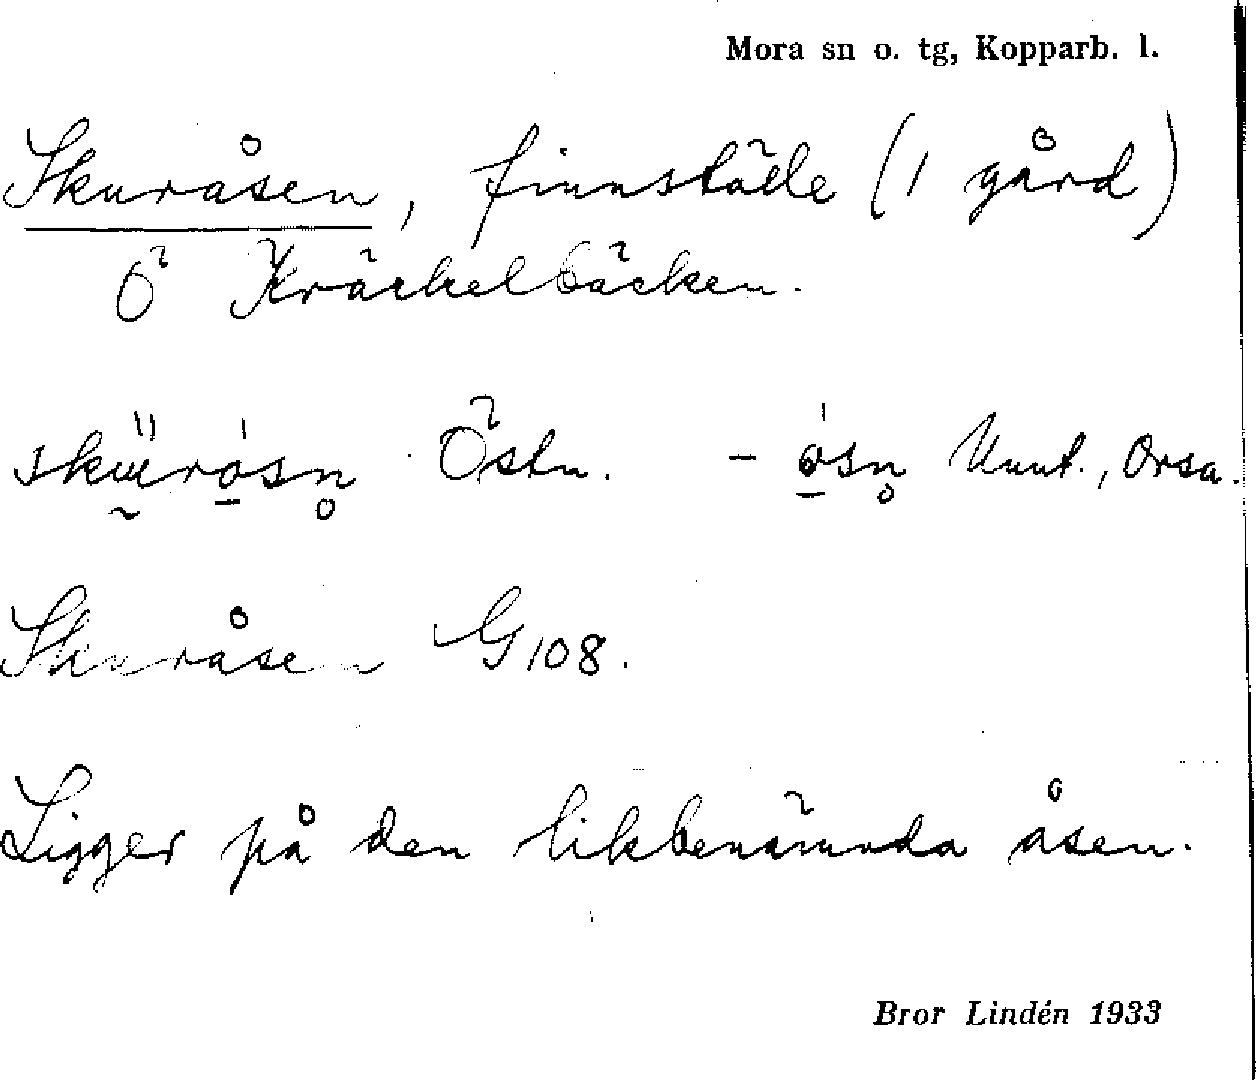 Mora sn o. tg, Kopparb. l.
Skuråsen, finnställe (1 gård)
Ö Kräckelbäcken.
Östn. Vamh., Orsa.
Skuråsen G 108.
Ligger på den likbenämnda åsen.
Bror Lindén 1933